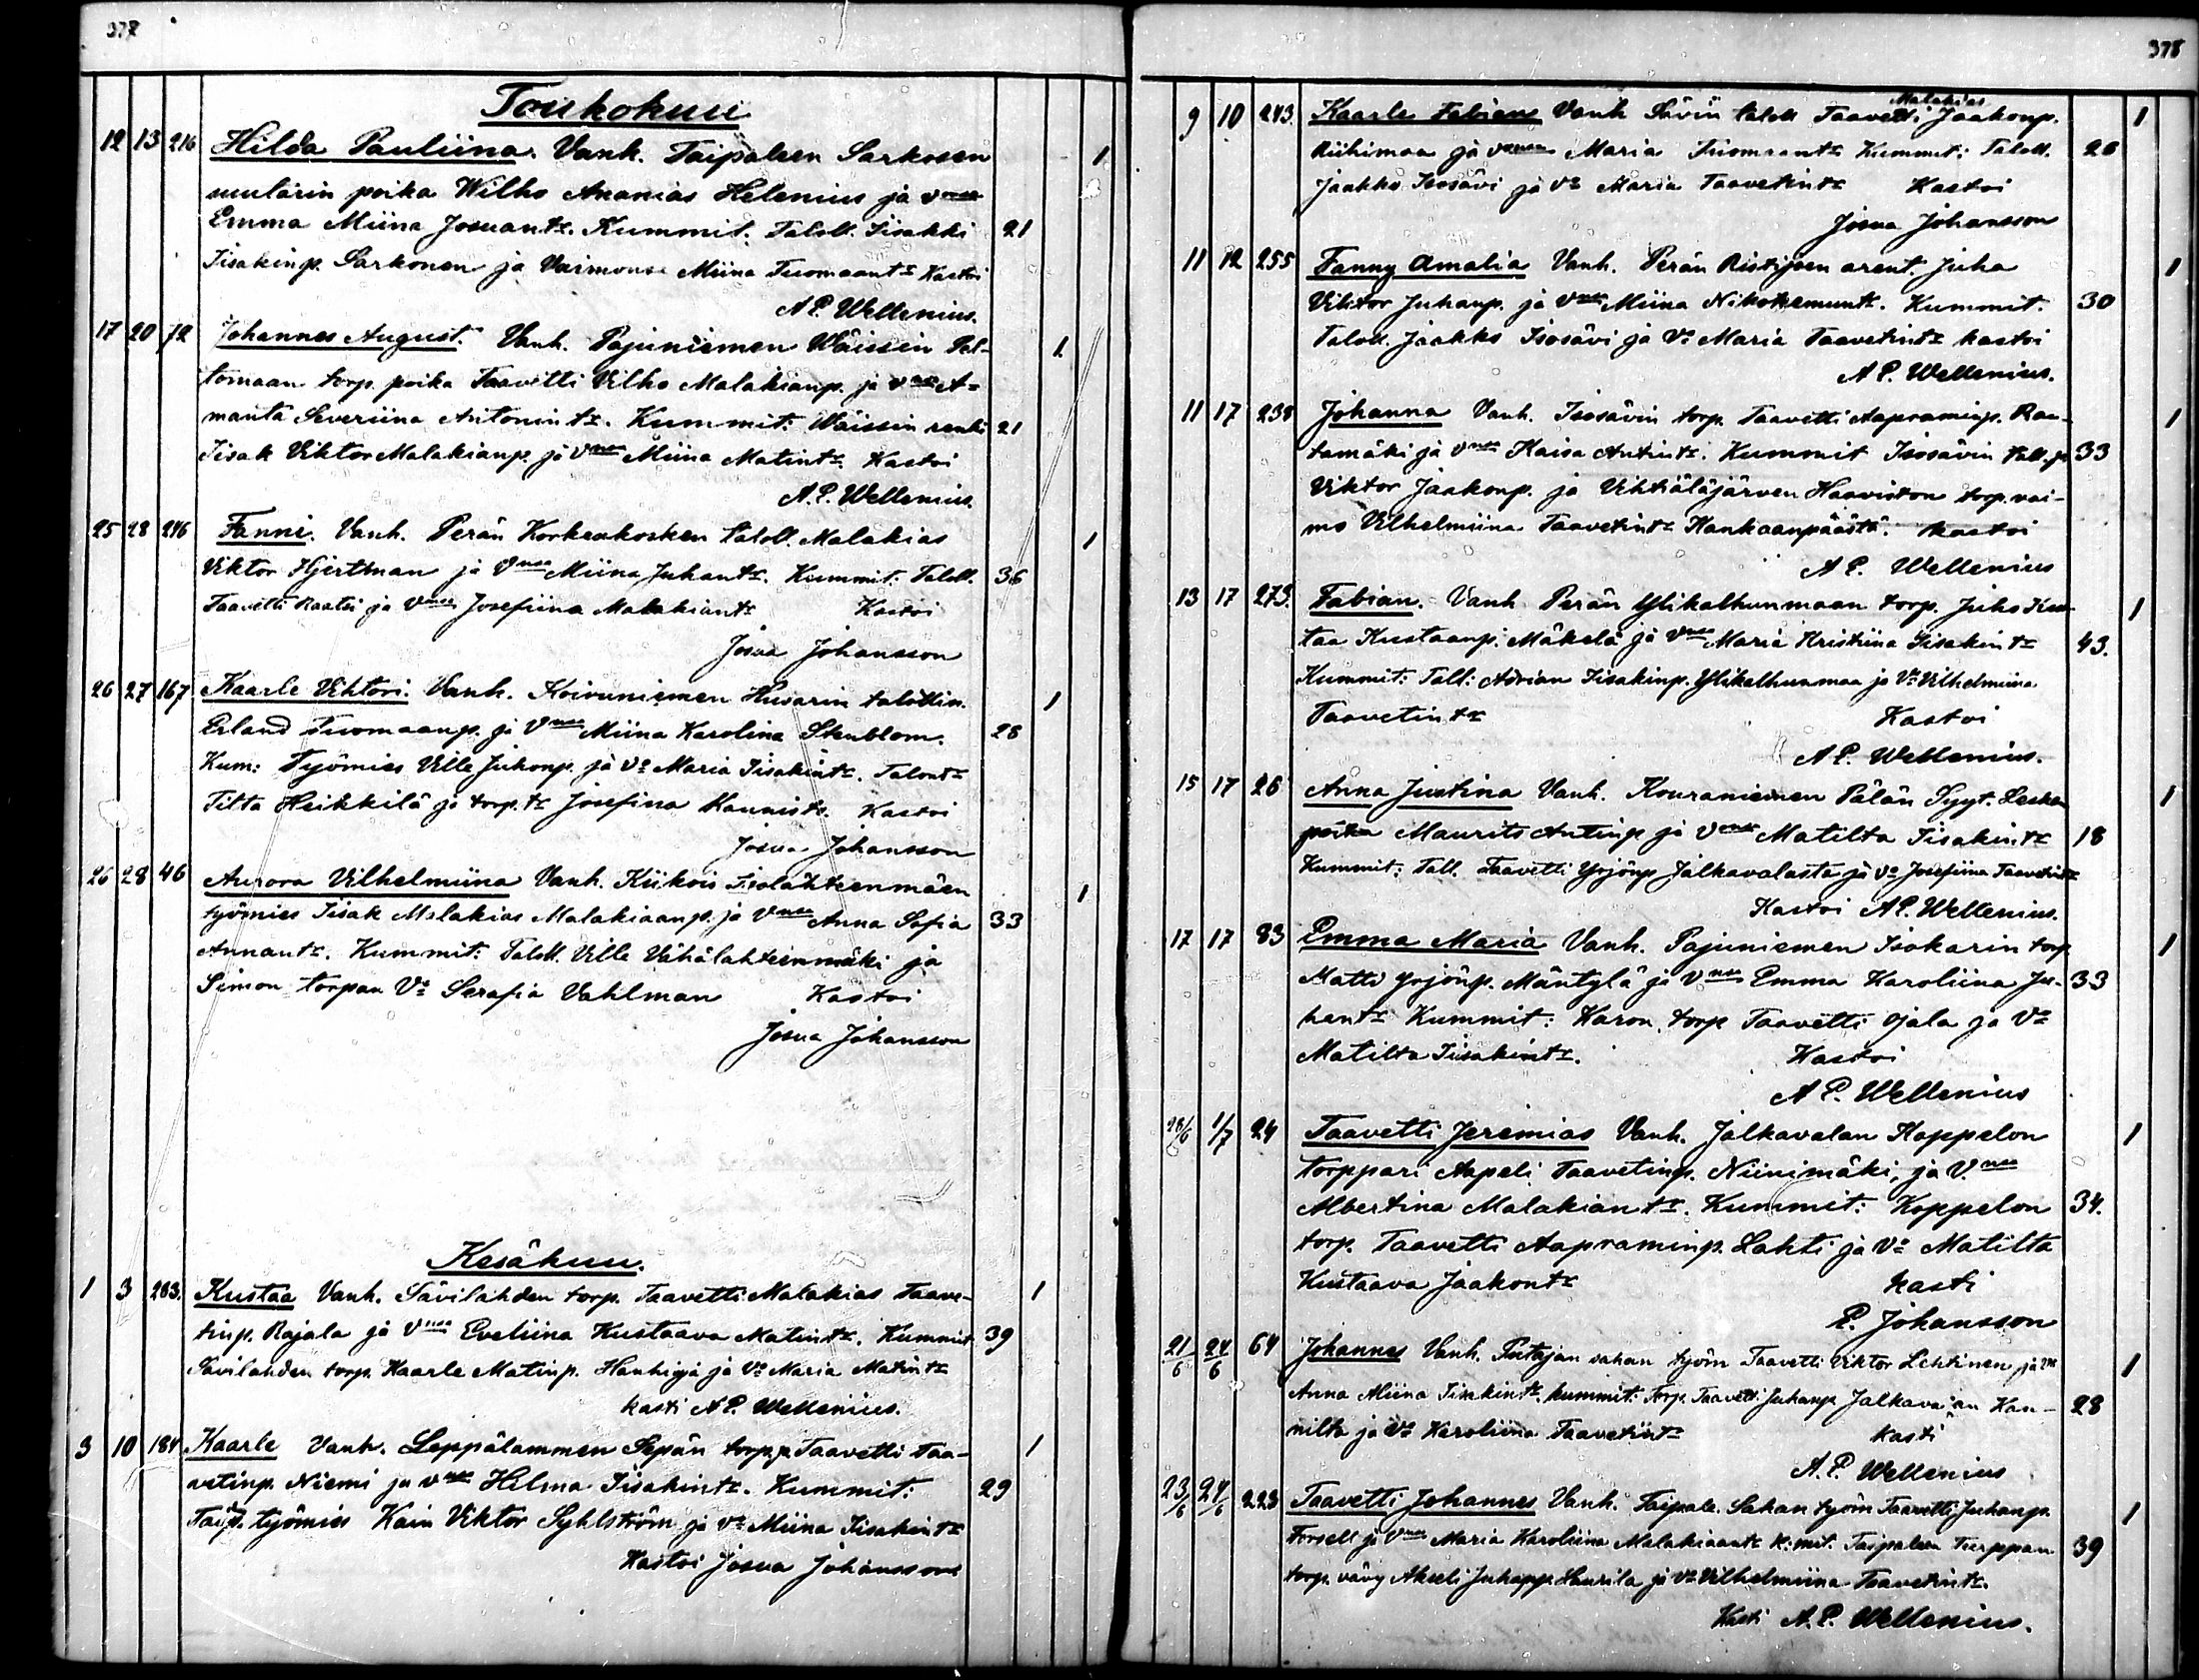 377
Toukokuu
12 13 216 Hilda Pauliina. Vanh. Taipaleen Sarkosen 1
muularin poika Wilho Ananias Helenius ja vmsa
Emma Miina Josuantr. Kummit. Taloll. Iisakki 21
Iisakinp. Sarkonen ja Vaimonsa Miina Tuomaantr Kastoi
A P. Wellenius.
17 20 72 Johannes August. Vanh. Pajuniemen Wäissin Pel- 1
tomaan torp. poika Taavetti Vilho Malakianp. ja vmsa A-
manta Severiina Antonintr. Kummit: Wäissin renki 21
Iisak Viktor Malakianp. ja Vmsa Miina Matintr. Kastoi
A. P. Wellenius.
25 28 246 Fanni. Vanh. Perän Korkeakosken taloll. Malakias 1
Viktor Hjertman ja Vmsa Miina Juhantr. Kummit: Taloll. 36
Taavetti Raatei ja Vmsa Josefiina Malakiantr Kastoi
Josua Johansson
26 27 167 Kaarle Vihtori. Vanh. Koivuniemen Husarin talollin. 1
Erland Tuomaanp. ja Vmsa Miina Karolina Stenblom. 28
Kum: Työmies Ville Juhonp. ja Vo Maria Iisakintr. Talontr
Tilta Heikkilä ja torp.tr Josefina Kaunisto. Kastoi
Josua Johansson
26 28 46 Aurora Vilhelmiina Vanh. Kiikois Isolähteenmäen 1
työmies Iisak Malakias Malakiaanp. ja Vmsa Anna Sofia 33
Annantr. Kummit: Taloll. Ville Vähälähteenmäki ja
Simon torpan Vo Serafia Vahlman Kastoi
Josua Johansson
Kesäkuu.
1 3 283. Kustaa Vanh. Sävilahden torp. Taavetti Malakias Taave- 1
tinp. Rajala ja Vmsa Eveliina Kustaava Matintr. Kummit 39
Sävilahden torp. Kaarle Matinp. Hanhioja ja Vo Maria Matintr
kasti A P. Wellenius.
3 10 184 Kaarle Vanh. Leppälammen Sepän torp.p. Taavetti Taa- 1
vetinp. Niemi ja vmsa Helma Iisakintr. Kummit: 29
Taip. työmies Kain Viktor Syhlström ja vo Miina Iisakintr
Kastoi Josua Johansson
378
Malakias
9 10 243. Kaarle Fabians Vanh Sävin taloll Taavetti Jaakonp. 1
Riihimaa ja vmsa Maria Tuomaantr Kummit: Taloll. 26
Jaakko Isosävi ja Vo Maria Taavetintr Kastoi
Josua Johansson
11 12 255 Fanny Amalia Vanh. Perän Ristijoen arent. Juha 1
Viktor Juhanp. ja Vmsa Miina Nikotemuntr. Kummit. 30
Taloll. Jaakko Isosävi ja Vo Maria Taavetintr kastoi
A P. Wellenius.
11 17 238 Johanna Vanh. Isosävin torp. Taavetti Aapraminp. Rau- 1
tamäki ja vmsa Kaisa Antintr. Kummit Isosävin tall.p. 33
Viktor Jaakonp. ja Vihtiäläjärven Haaviston torp. vai-
mo Vilhelmiina Taavetintr Kankaanpäästä. kastoi
A P. Wellenius
13 17 273. Fabian. Vanh Perän Ylikalhunmaan torp. Juho Kus- 1
taa Kustaanp. Mäkelä ja vmsa Maria Kristiina Iisakintr 43.
Kummit: Tall: Adrian Iisakinp. Ylikalhunmaa ja Vo Vilhelmiina
Taavetintr Kastoi
A P. Wellenius.
15 17 26 Anna Justina Vanh. Kouraniemen Pälän Syyt. Lesken 1
poika Maurits Antinp ja vmsa Matilta Iisakintr 18
Kummit: Tall. Taavetti Yrjönp Jalkavalasta ja Vo Josefiina Taavetintr
Kastoi A P. Wellenius.
17 17 83 Emma Maria Vanh. Pajuniemen Isokarin torp. 1
Matti Yrjönp. Mäntylä ja Vmsa Emma Karoliina Ju- 33
hantr Kummit: Karon torp Taavetti Ojala ja Vo
Matilta Iisakintr. Kastoi
A P. Wellenius
28/6 1/7 24 Taavetti Jeremias Vanh. Jalkavalan Koppelon 1
torppari Aapeli Taavetinp. Niinimäki, ja V.msa
Albertina Malakiantr. Kummit: Koppelon 34.
torp. Taavetti Aapraminp. Lahti ja Vo Matilta
Kustaava Jaakontr kasti
P. Johansson
21/6 24/6 64 Johannes Vanh. Putajan sahan työm Taavetti Viktor Lehtinen ja vm 1
Anna Miina Iisakintr. kummit: Torp. Taavetti Juhanp Jalkava an Kan- 28
nilta ja Vo Karoliina Taavetintr kasti
A. P. Wellenius
23/6 24/6 223 Taavetti Johannes Vanh. Taipale. Sahan työm Taavetti Juhanp. 1
Forsell ja Vmsa Maria Karoliina Malakiaantr K:mit. Taipaleen Turppan 39
torp. vävy Akseli Juhanp. Haurila ja Vo Vilhelmiina Taavetintr.
Kasti A. P. Wellenius.